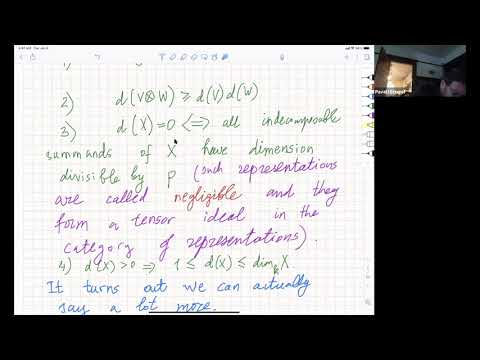 1)
2) d(V⊗W) ≥ d(V)d(W)
3) d(X)=0 <=> all indecomposable
summands of X have dimension
divisible by p (such representations
are called negligible and they
form a tensor ideal in the
category of representations).
4) d(X)>0 => 1 ≤ d(X) ≤ dim_k X.
It turns out we can actually
say a lot more.